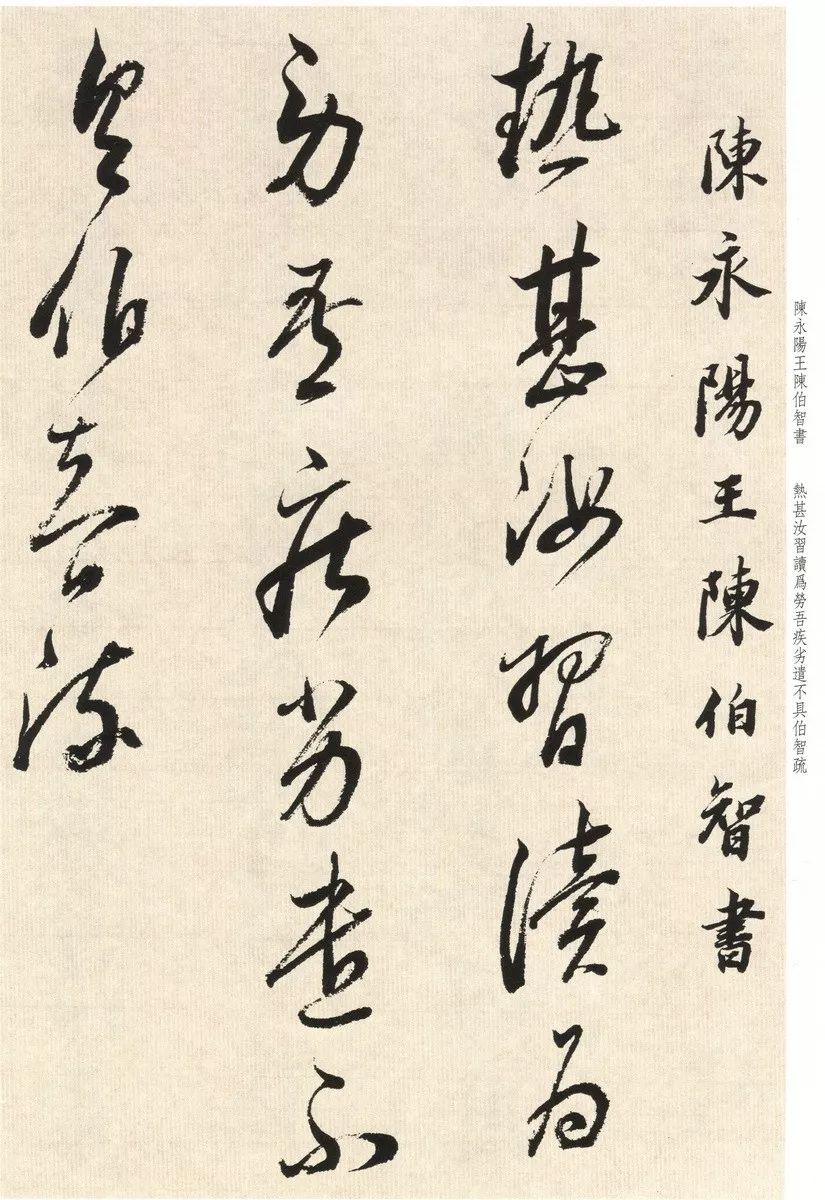 陳永陽王陳伯智書 熱甚汝習讀爲勞吾疾劣遣不具伯智疏
陳永陽王陳伯智書
熱甚汝習讀爲
勞吾疾劣遣不
具伯智疏